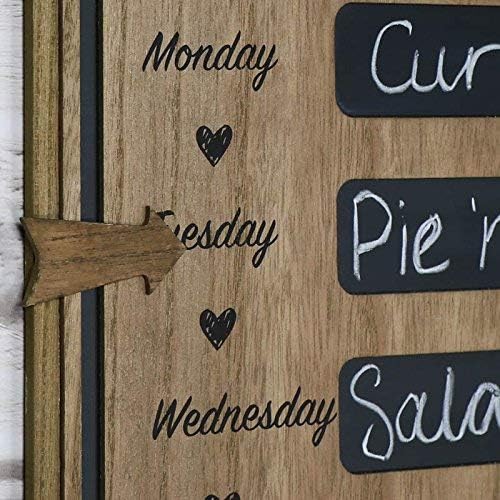 Monday Cur
Tuesday Pie 'n
Wednesday Sala